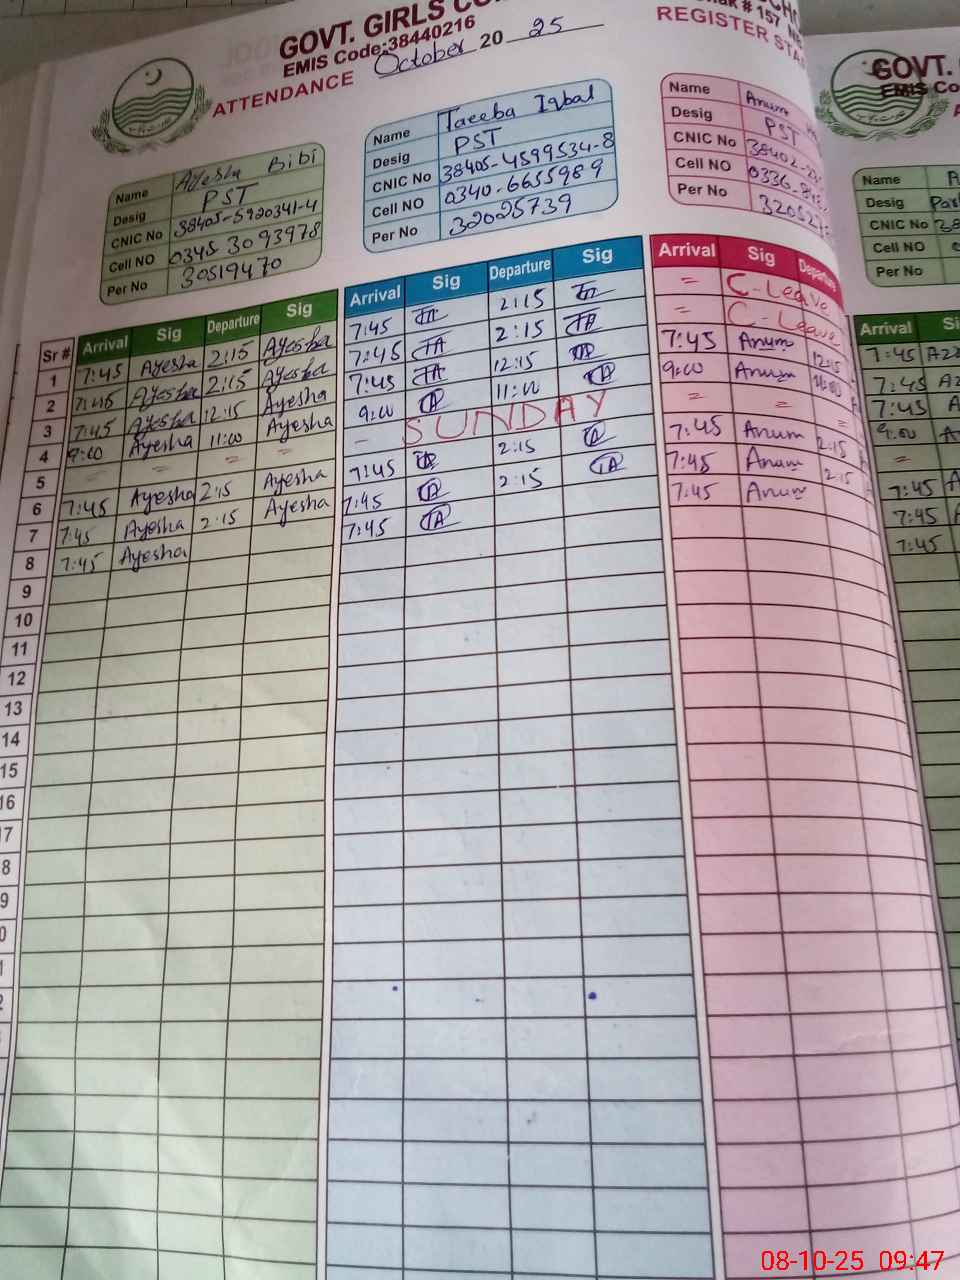 GOVT. GIRLS
EMIS Code:38440216
ATTENDANCE October 20 25
# 157
REGISTER
GOVT.
EMIS Co
Name Ayesha Bibi
Desig PST
CNIC No 38405-5920341-4
Cell NO 0345 3093978
Per No 30519470
Name Taeeba Iqbal
Desig PST
CNIC No 38405-4599534-8
Cell NO 0340-6655989
Per No 32025739
Name Anum
Desig PST
CNIC No 38402-
Cell NO 0336-
Per No
Name
Desig
CNIC No
Cell NO
Per No
Sr # Arrival Sig Departure Sig
1 7:45 Ayesha 2:15 Ayesha
2 7:45 Ayesha 2:15 Ayesha
3 7:45 Ayesha 12:15 Ayesha
4 9:00 Ayesha 11:00 Ayesha
5 = = = =
6 7:45 Ayesha 2:15 Ayesha
7 7:45 Ayesha 2:15 Ayesha
8 7:45 Ayesha
9
10
11
12
13
14
15
16
Arrival Sig Departure Sig
7:45 TA 2:15 TA
7:45 TA 2:15 TA
7:45 TA 12:15 TA
9:00 TA 11:00 TA
- SUNDAY
7:45 TA 2:15 TA
7:45 TA 2:15 TA
7:45 TA
Arrival Sig Departure
= C-Leave
= C-Leave
7:45 Anum 12:15
9:00 Anum
= = =
7:45 Anum 2:15
7:45 Anum 2:15
7:45 Anum
Arrival
7:45
7:45
7:45
9:00
=
7:45
7:45
7:45
08-10-25 09:47